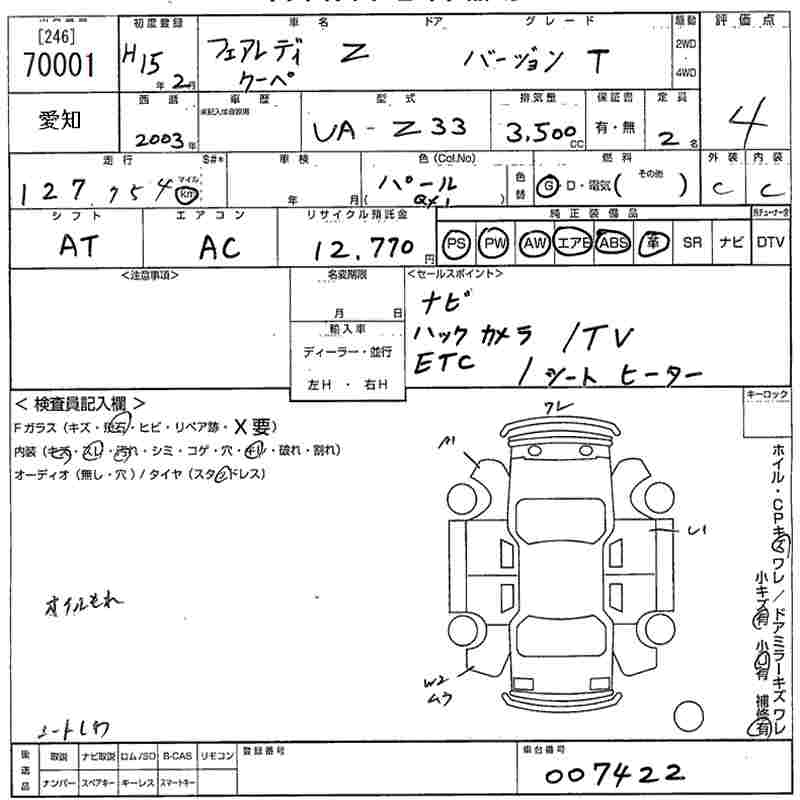 [246]
70001
初度登録
H15年2月
車名 ドア グレード
フェアレディ Z バージョン T
クーペ
駆動
2WD
4WD
評価点
4
愛知
西暦
2003年
車歴
型式
UA-Z33
排気量
3.500cc
保証書
有・無
定員
2名
走行
127,754
マイル
km
S#*
車検
年 月
色 (Col.No)
パール
(QX1)
色替
燃料
G・D・電気( その他 )
外装
C
内装
C
シフト
AT
エアコン
AC
リサイクル預託金
12,770円
純正装備品
PS PW AW エアB ABS 革 SR ナビ DTV
<注意事項>
名変期限
月 日
輸入車
ディーラー・並行
左H ・ 右H
<セールスポイント>
ナビ
バックカメラ /TV
ETC /シートヒーター
キーロック
< 検査員記入欄 >
Fガラス (キズ・飛石・ヒビ・リペア跡・X要)
内装 (キズ・スレ・汚れ・シミ・コゲ・穴・キレ・破れ・割れ)
オーディオ (無し・穴) / タイヤ (スタッドレス)
ワレ
A1
U1
W2
ムラ
オイルもれ
シートしわ
ホイル・CPキズ ワレ / ドアミラーキズ ワレ
小キズ有 小凹有 補修有
後送品
取説 ナビ取説 ロム/SD B-CAS リモコン
ナンバー スペアキー キーレス スマートキー
登録番号
車台番号
007422